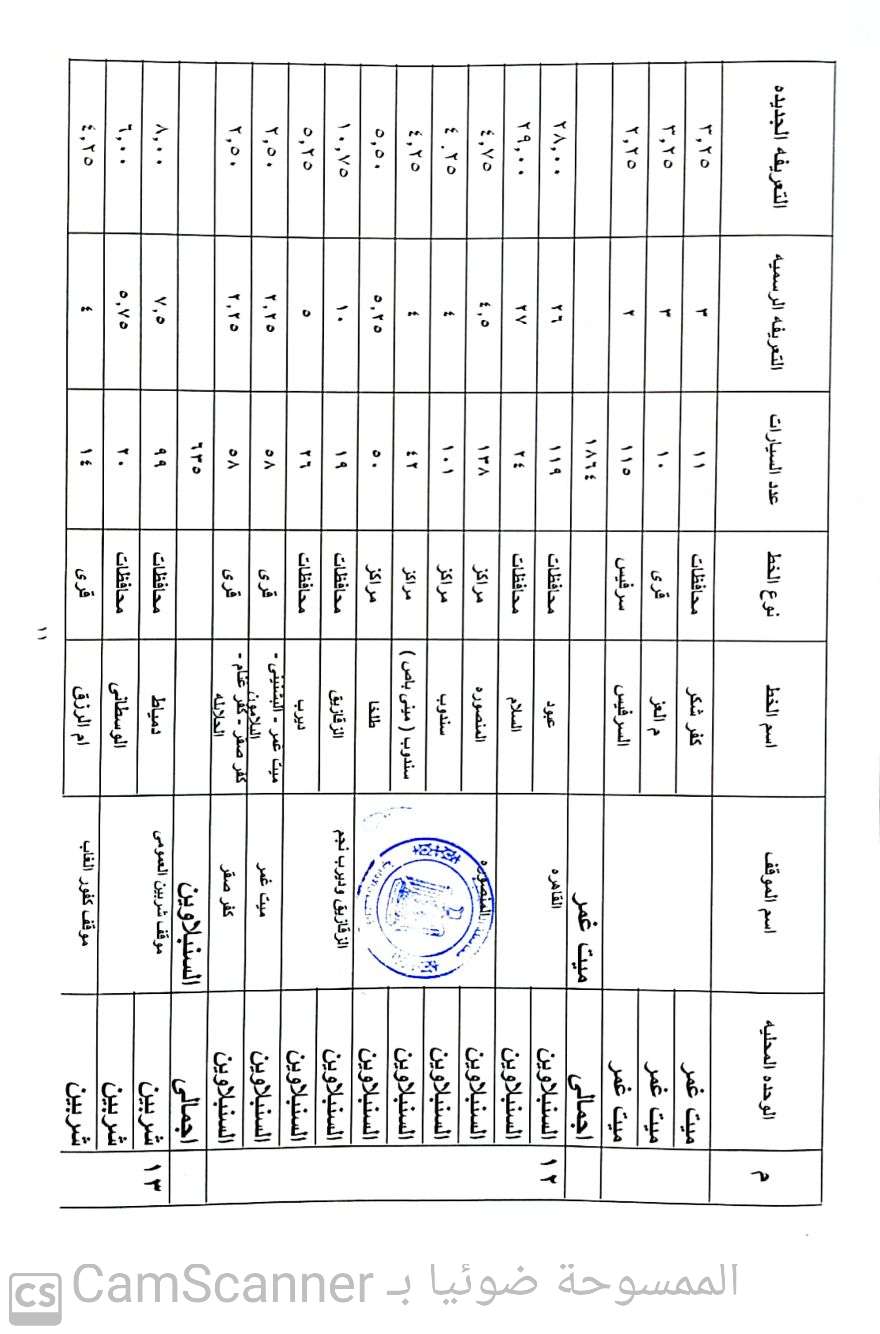 م الوحده المحليه اسم الموقف اسم الخط نوع الخط عدد السيارات التعريفه الرسميه التعريفه الجديده
ميت غمر كفر شكر محافظات ١١ ٣ ٣,٢٥
ميت غمر م العز قرى ١٠ ٣ ٣,٢٥
ميت غمر السرفيس سرفيس ١١٥ ٢ ٢,٢٥
اجمالى ميت غمر ١٨٦٤
١٢ السنبلاوين القاهره عبود محافظات ١١٩ ٢٦ ٢٨,٠٠
السنبلاوين السلام محافظات ٢٤ ٢٧ ٢٩,٠٠
السنبلاوين المنصوره المنصوره مراكز ١٣٨ ٤,٥ ٤,٧٥
السنبلاوين سندوب مراكز ١٠١ ٤ ٤.٢٥
السنبلاوين سندوب ( مينى باص ) مراكز ٤٢ ٤ ٤,٢٥
السنبلاوين طلخا مراكز ٥٠ ٥,٢٥ ٥,٥٠
السنبلاوين الزقازيق وديرب نجم الزقازيق محافظات ١٩ ١٠ ١٠,٧٥
السنبلاوين ديرب محافظات ٢٦ ٥ ٥,٢٥
السنبلاوين ميت غمر ميت غمر - البشنينى - البلامون قرى ٥٨ ٢,٢٥ ٢,٥٠
السنبلاوين كفر صقر كفر صقر - كفر غنام - الحلايله قرى ٥٨ ٢,٢٥ ٢,٥٠
اجمالى السنبلاوين ٦٣٥
١٣ شربين موقف شربين العمومى دمياط محافظات ٩٩ ٧,٥ ٨,٠٠
شربين الوسطانى محافظات ٢٠ ٥,٧٥ ٦,٠٠
شربين موقف كفور الغاب ام الرزق قرى ١٤ ٤ ٤,٢٥
١١
الممسوحة ضوئيا بـ CamScanner
CS